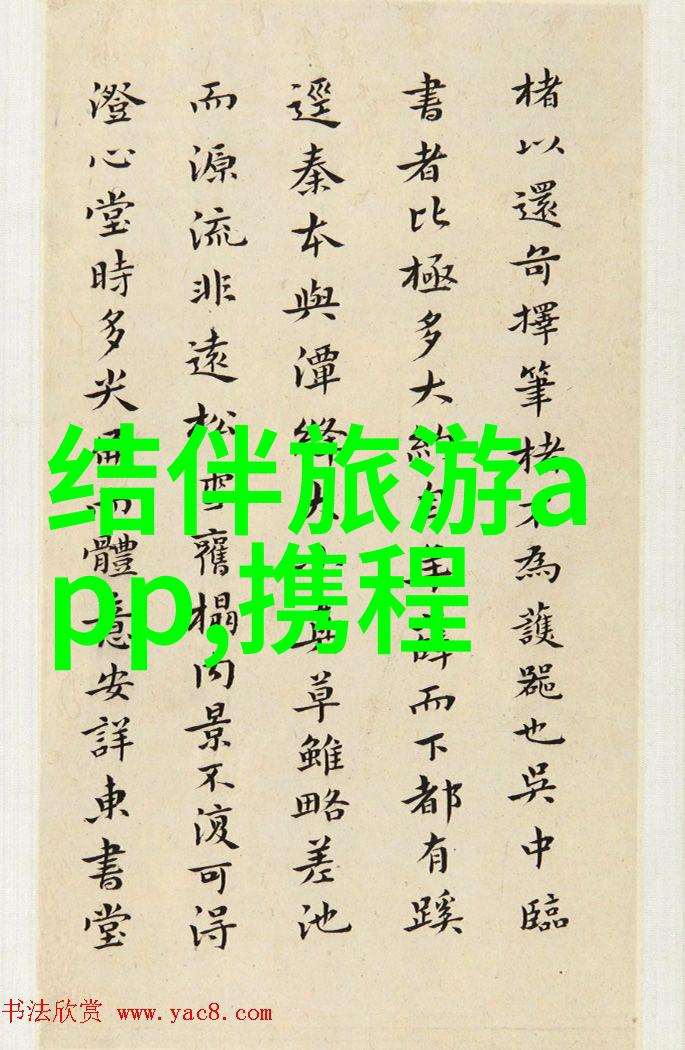 楮以還奇擇筆楮不為護罷也吳中臨
書者比極多大約自 而下都有蹊
逕秦本與潭絳大 真草雖略差池
而源流非遠松雪舊榻内景不復可得
澄心堂時多尖 而體意安詳東書堂
结伴旅游a
pp,携程
书法欣赏 www.yac8.com